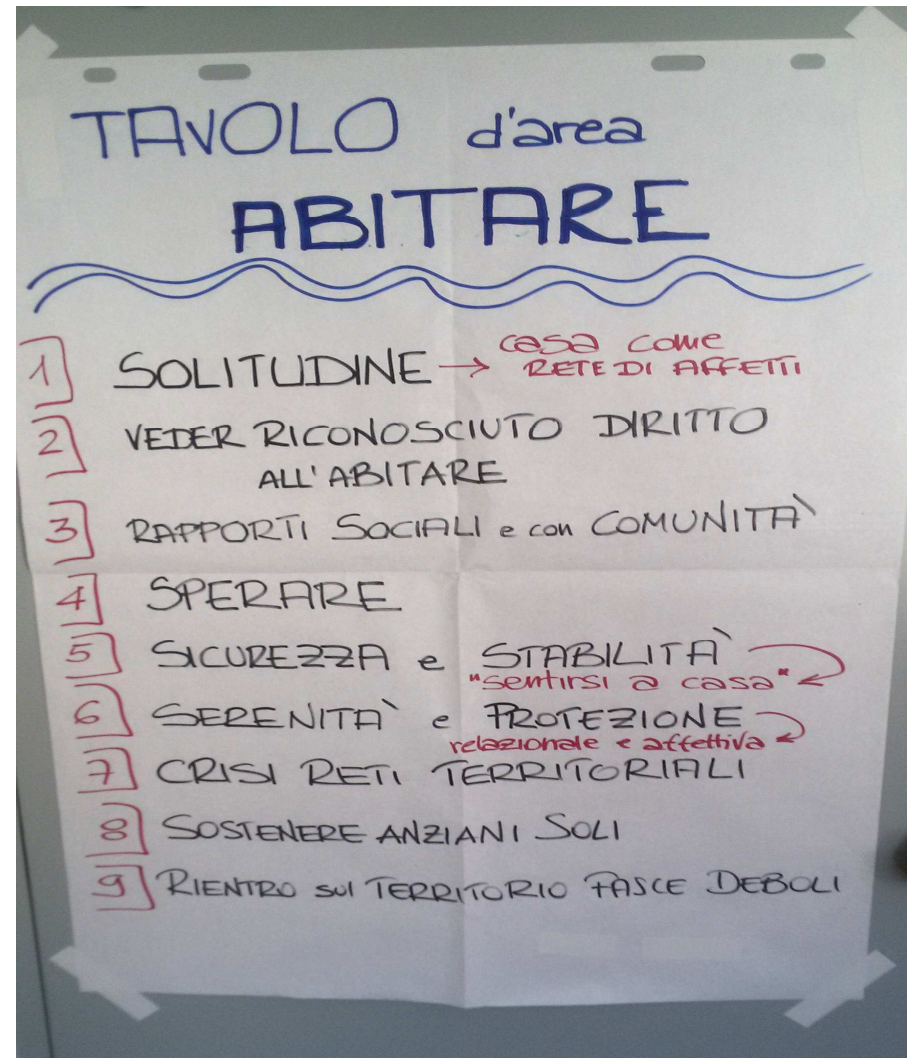 TAVOLO d'area
ABITARE
1 SOLITUDINE → casa come
RETE DI AFFETTI
2 VEDER RICONOSCIUTO DIRITTO
ALL'ABITARE
3 RAPPORTI SOCIALI e con COMUNITÀ
4 SPERARE
5 SICUREZZA e STABILITÀ
"sentirsi a casa"
6 SERENITÀ e PROTEZIONE
relazionale e affettiva
7 CRISI RETI TERRITORIALI
8 SOSTENERE ANZIANI SOLI
9 RIENTRO SUl TERRITORIO FASCE DEBOLI